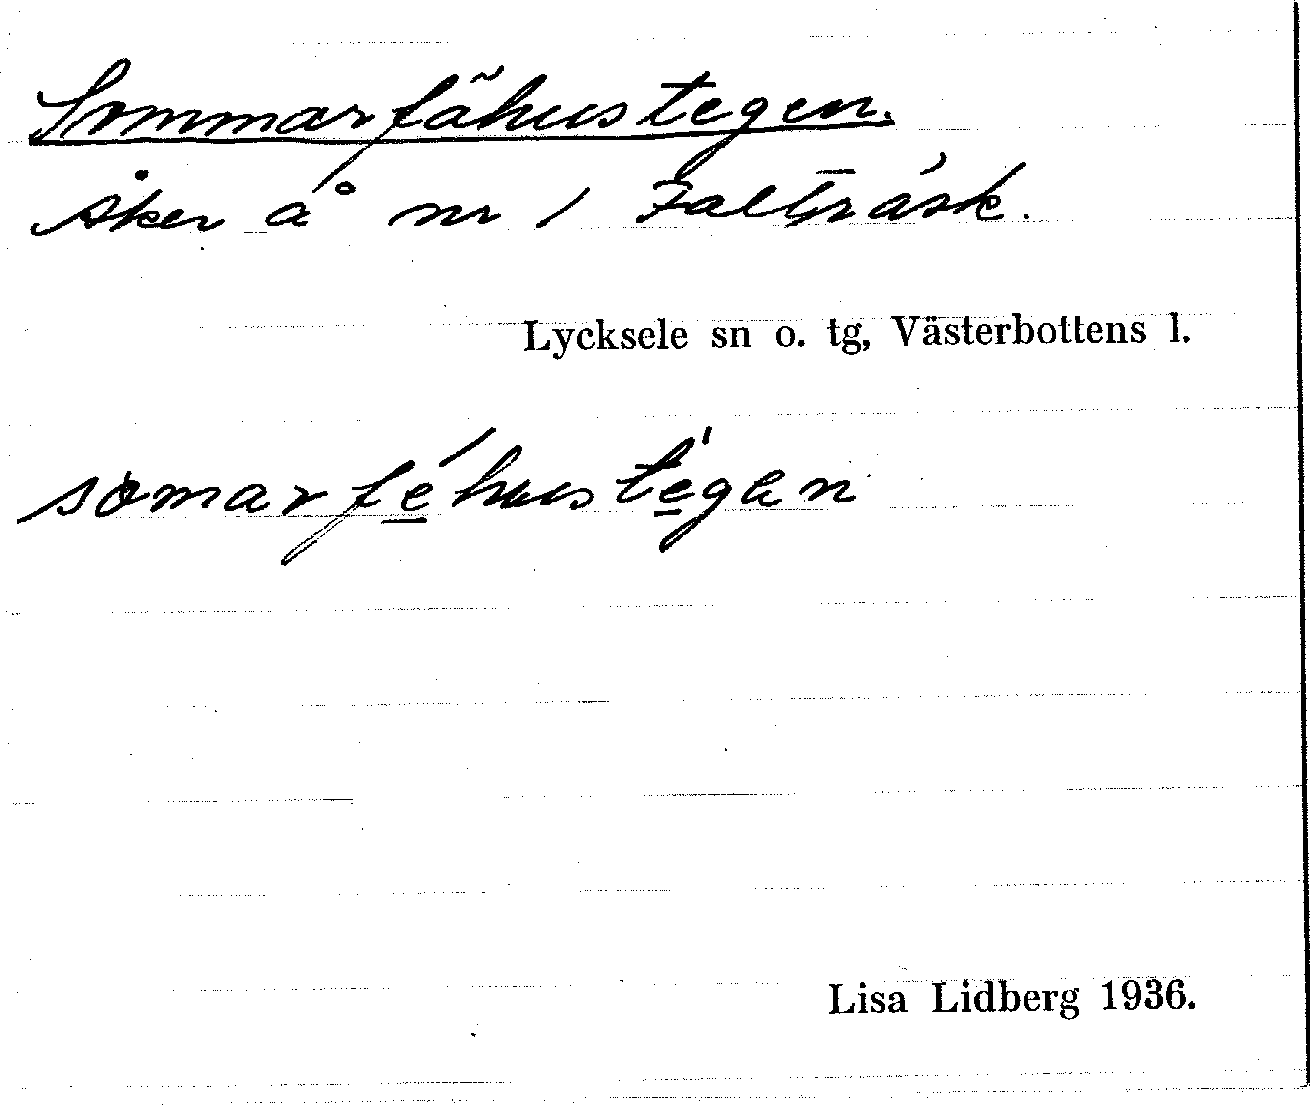 Sommarfähustegen.
Åker å nr 1 Falträsk.
Lycksele sn o. tg, Västerbottens l.
somarféhustégen
Lisa Lidberg 1936.